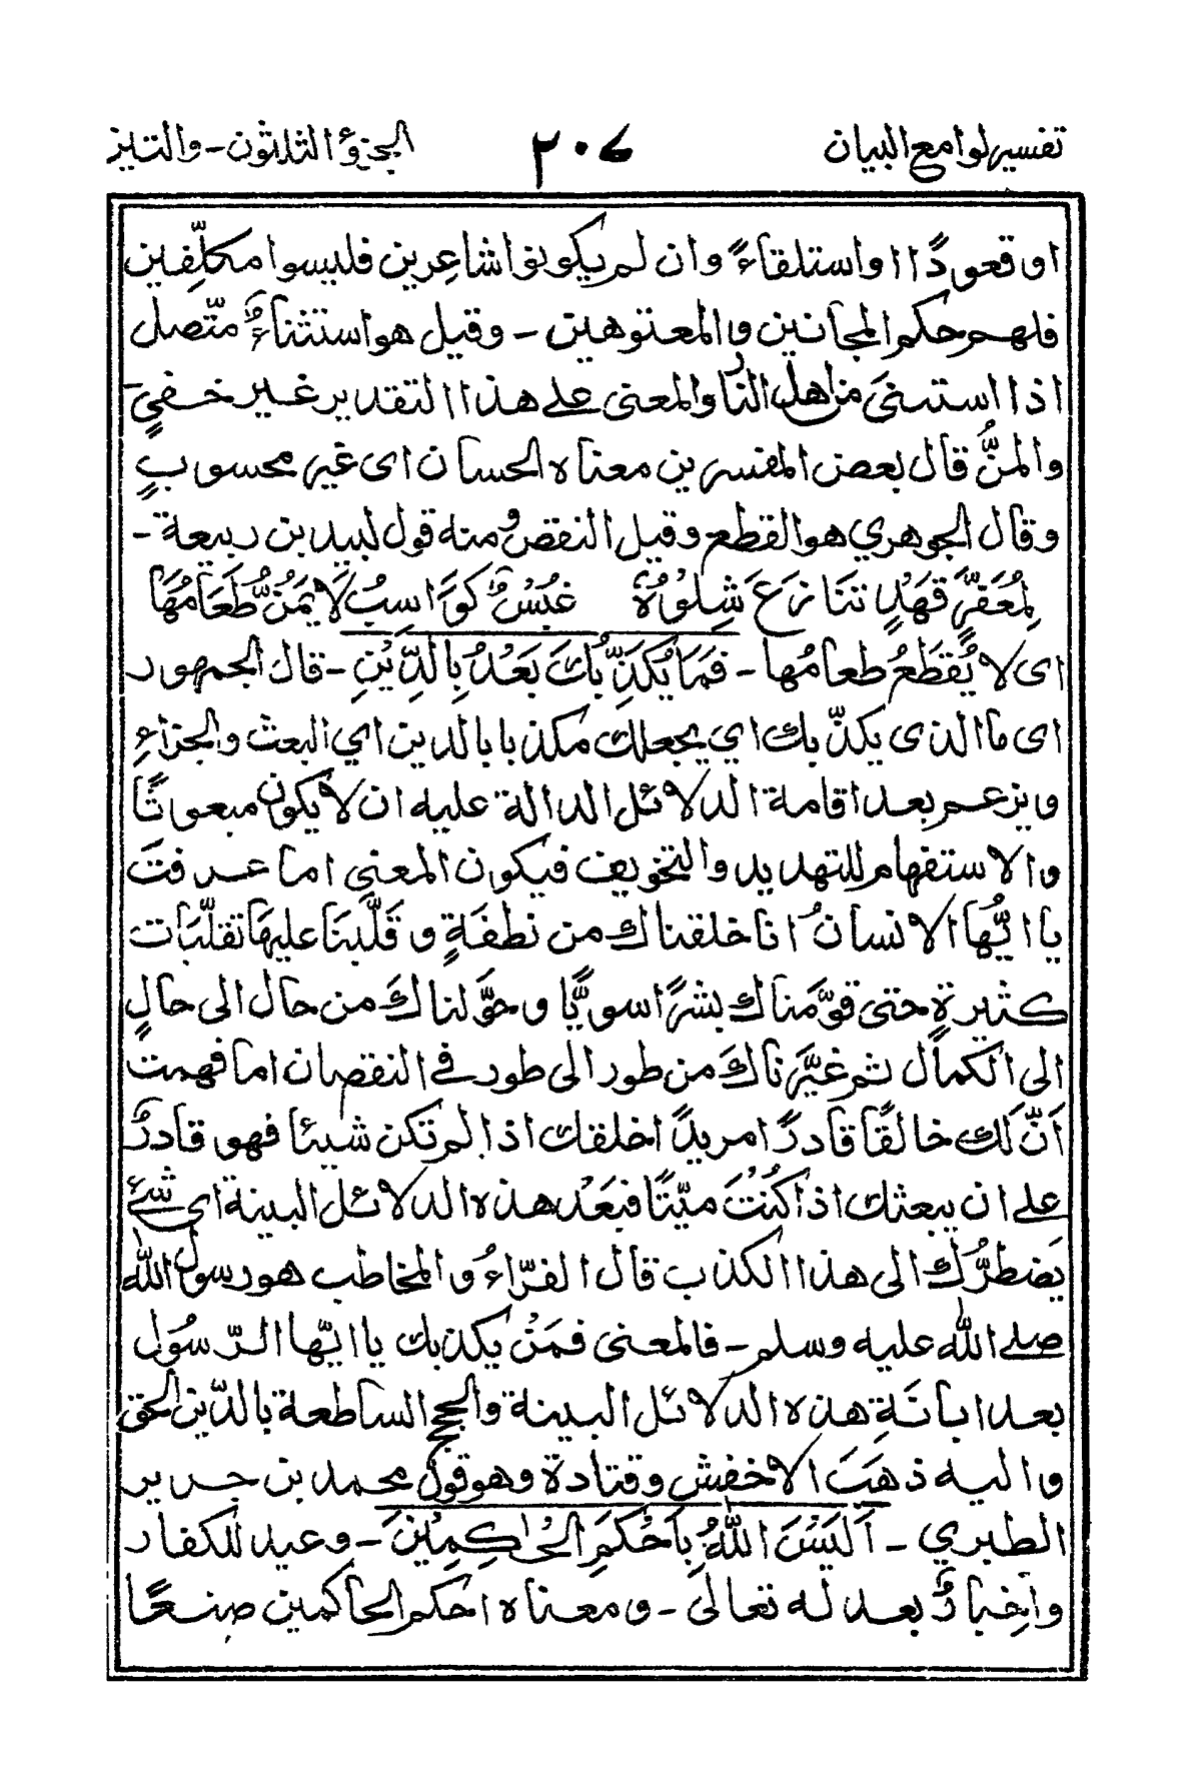 تفسير لوامع البيان ٢٠٧ الجزء الثلثون - والتين
او قعودًا او استلقاءً وان لم يكونوا شاعِرين فليسوا مكلَّفِين
فلهم حكم المجانين والمعتوهين - وقيل هو استثناءٌ متّصل
اذا استثنىَ من اهل النار والمعنى على هذا التقدير غير خفيٍّ -
والمنُّ قال بعض المفسرين معناه الحسان اى غير محسوبٍ
وقال الجوهري هو القطع وقيل النقص ومنه قول لبيد بن ربيعة -
لِمُعَفَّرٍ قَهْدٍ تَنَازَعَ شِلْوَهٗ غُبْسٌ كَوَاسِبُ لَا يُمَنُّ طَعَامُهَا
اى لا يُقطَعُ طعامُها - فَمَا يُكَذِّبُكَ بَعْدُ بِالدِّيْنِ - قال الجمهور
اى ما الذى يكذّبك اي يجعلك مكذبا بالدين اي البعث والجزاءِ
ويزعم بعد اقامة الدلائل الدالة عليه ان لا يكون مبعوثًا
والاستفهام للتهديد والتخويف فيكون المعنى اما عرفتَ
يا ايُّها الانسانُ انا خلقناك من نطفةٍ وقَلَّبنَا عليهَا تقلّبَات
كثيرةٍ حتى قوَّمناك بشرًا سويًّا وحوَّلناكَ من حال الى حالٍ
الى الكمال ثم غيَّرناكَ من طور الى طور في النقصان اما فهمت
اَنَّ لَك خالقًا قادرًا مريدًا خلقك اذا لم تكن شيئا فهو قادرٌ
على ان يبعثك اذا كُنْتَ ميّتًا فبَعْدَ هذه الدلائل البينة اي شئ
يَضطرُّك الى هذا الكذب قال الفرّاءُ والمخاطب هو رسول الله
صلى الله عليه وسلم - فالمعنى فمَنْ يكذبك يا ايّها الرّسُول
بعد ابانَةِ هذه الدلائل البينة والحجج الساطعة بالدّين الحق
واليه ذهَبَ الاخفش وقتادة وهو قول محمد بن جرير
الطبري - اَلَيْسَ اللّٰهُ بِاَحْكَمِ الْحٰكِمِيْنَ - وعيد للكفار
واِخبارٌ بعدله تعالىٰ - ومعناه احكم الحاكمين صنعًا